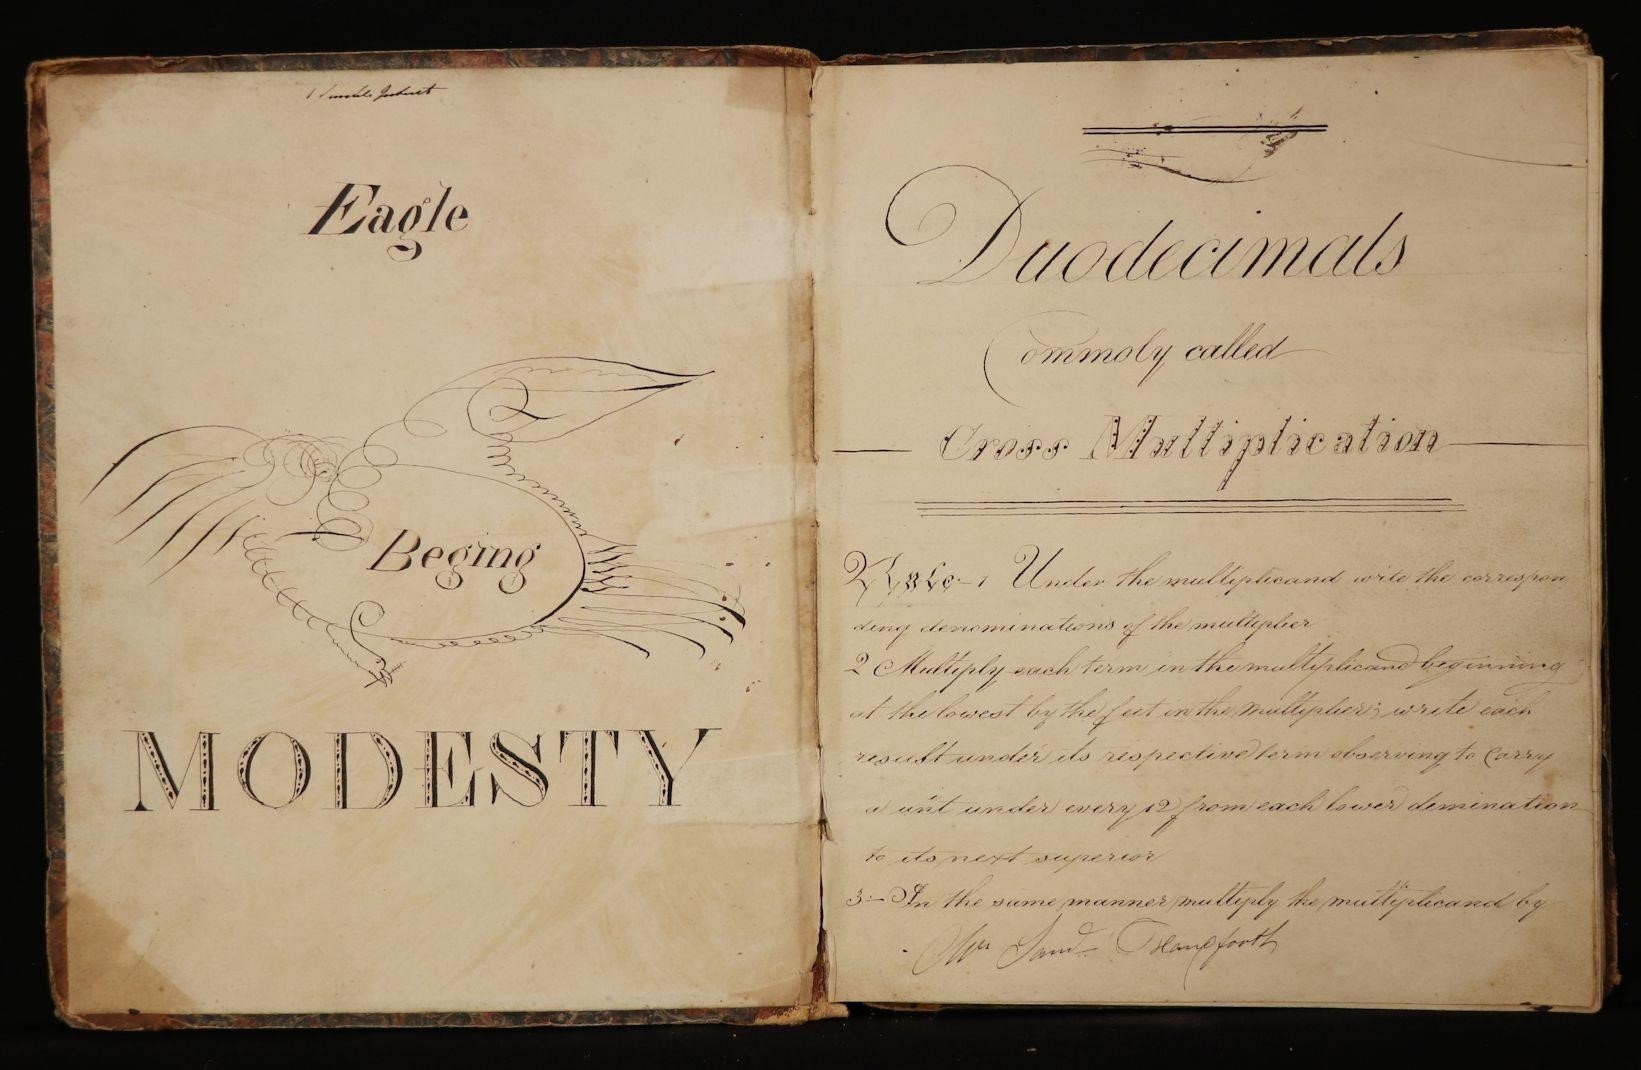 Eagle
Beging
MODESTY
Duodecimals
Commoly called
Cross Multiplication
Rule 1 Under the multiplicand write the correspon
ding denominations of the multiplier
2 Multiply each term in the multiplicand beginning
at the lowest by the feet in the multiplier; write each
result under its respective term observing to carry
a unt under every 12 from each lower demination
to its next superior
3 In the same manner multiply the multiplicand by